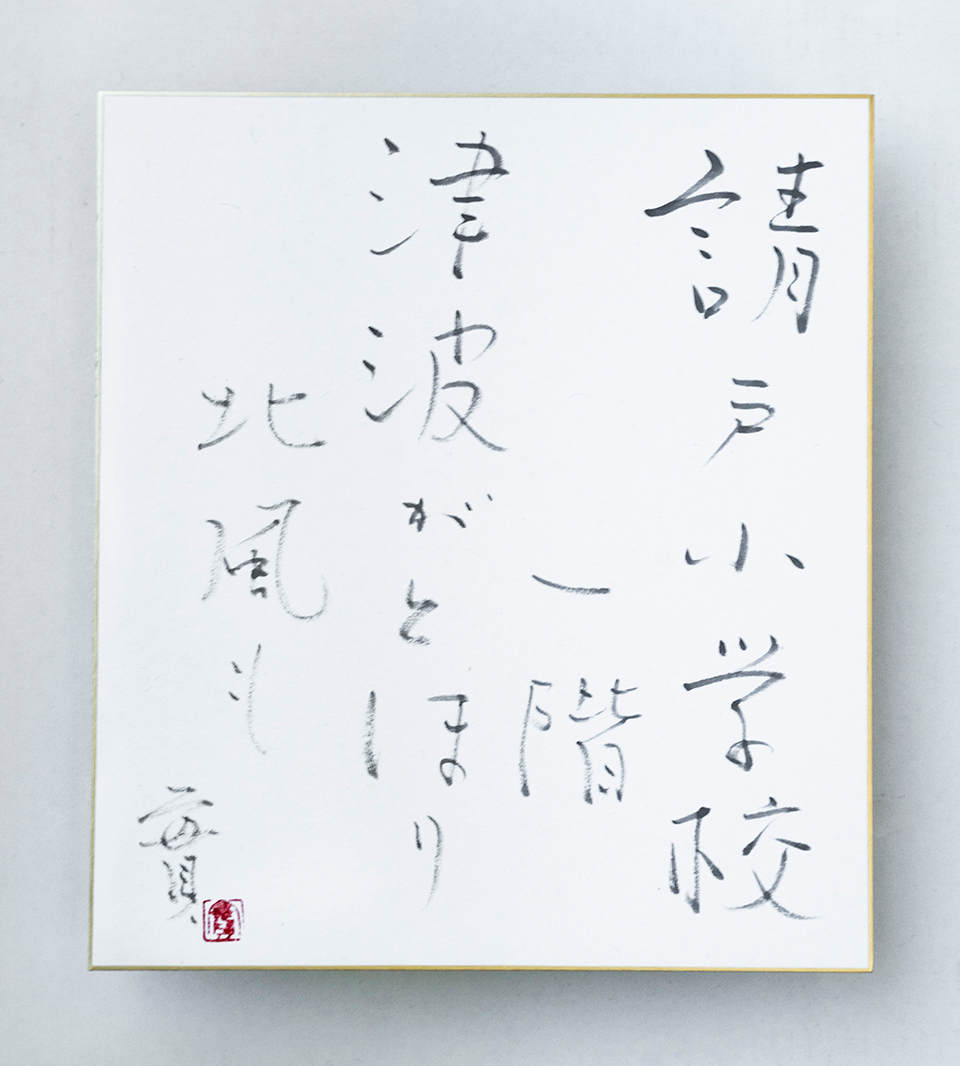 請戸小学校
一階
津波がとほり
北風も
實